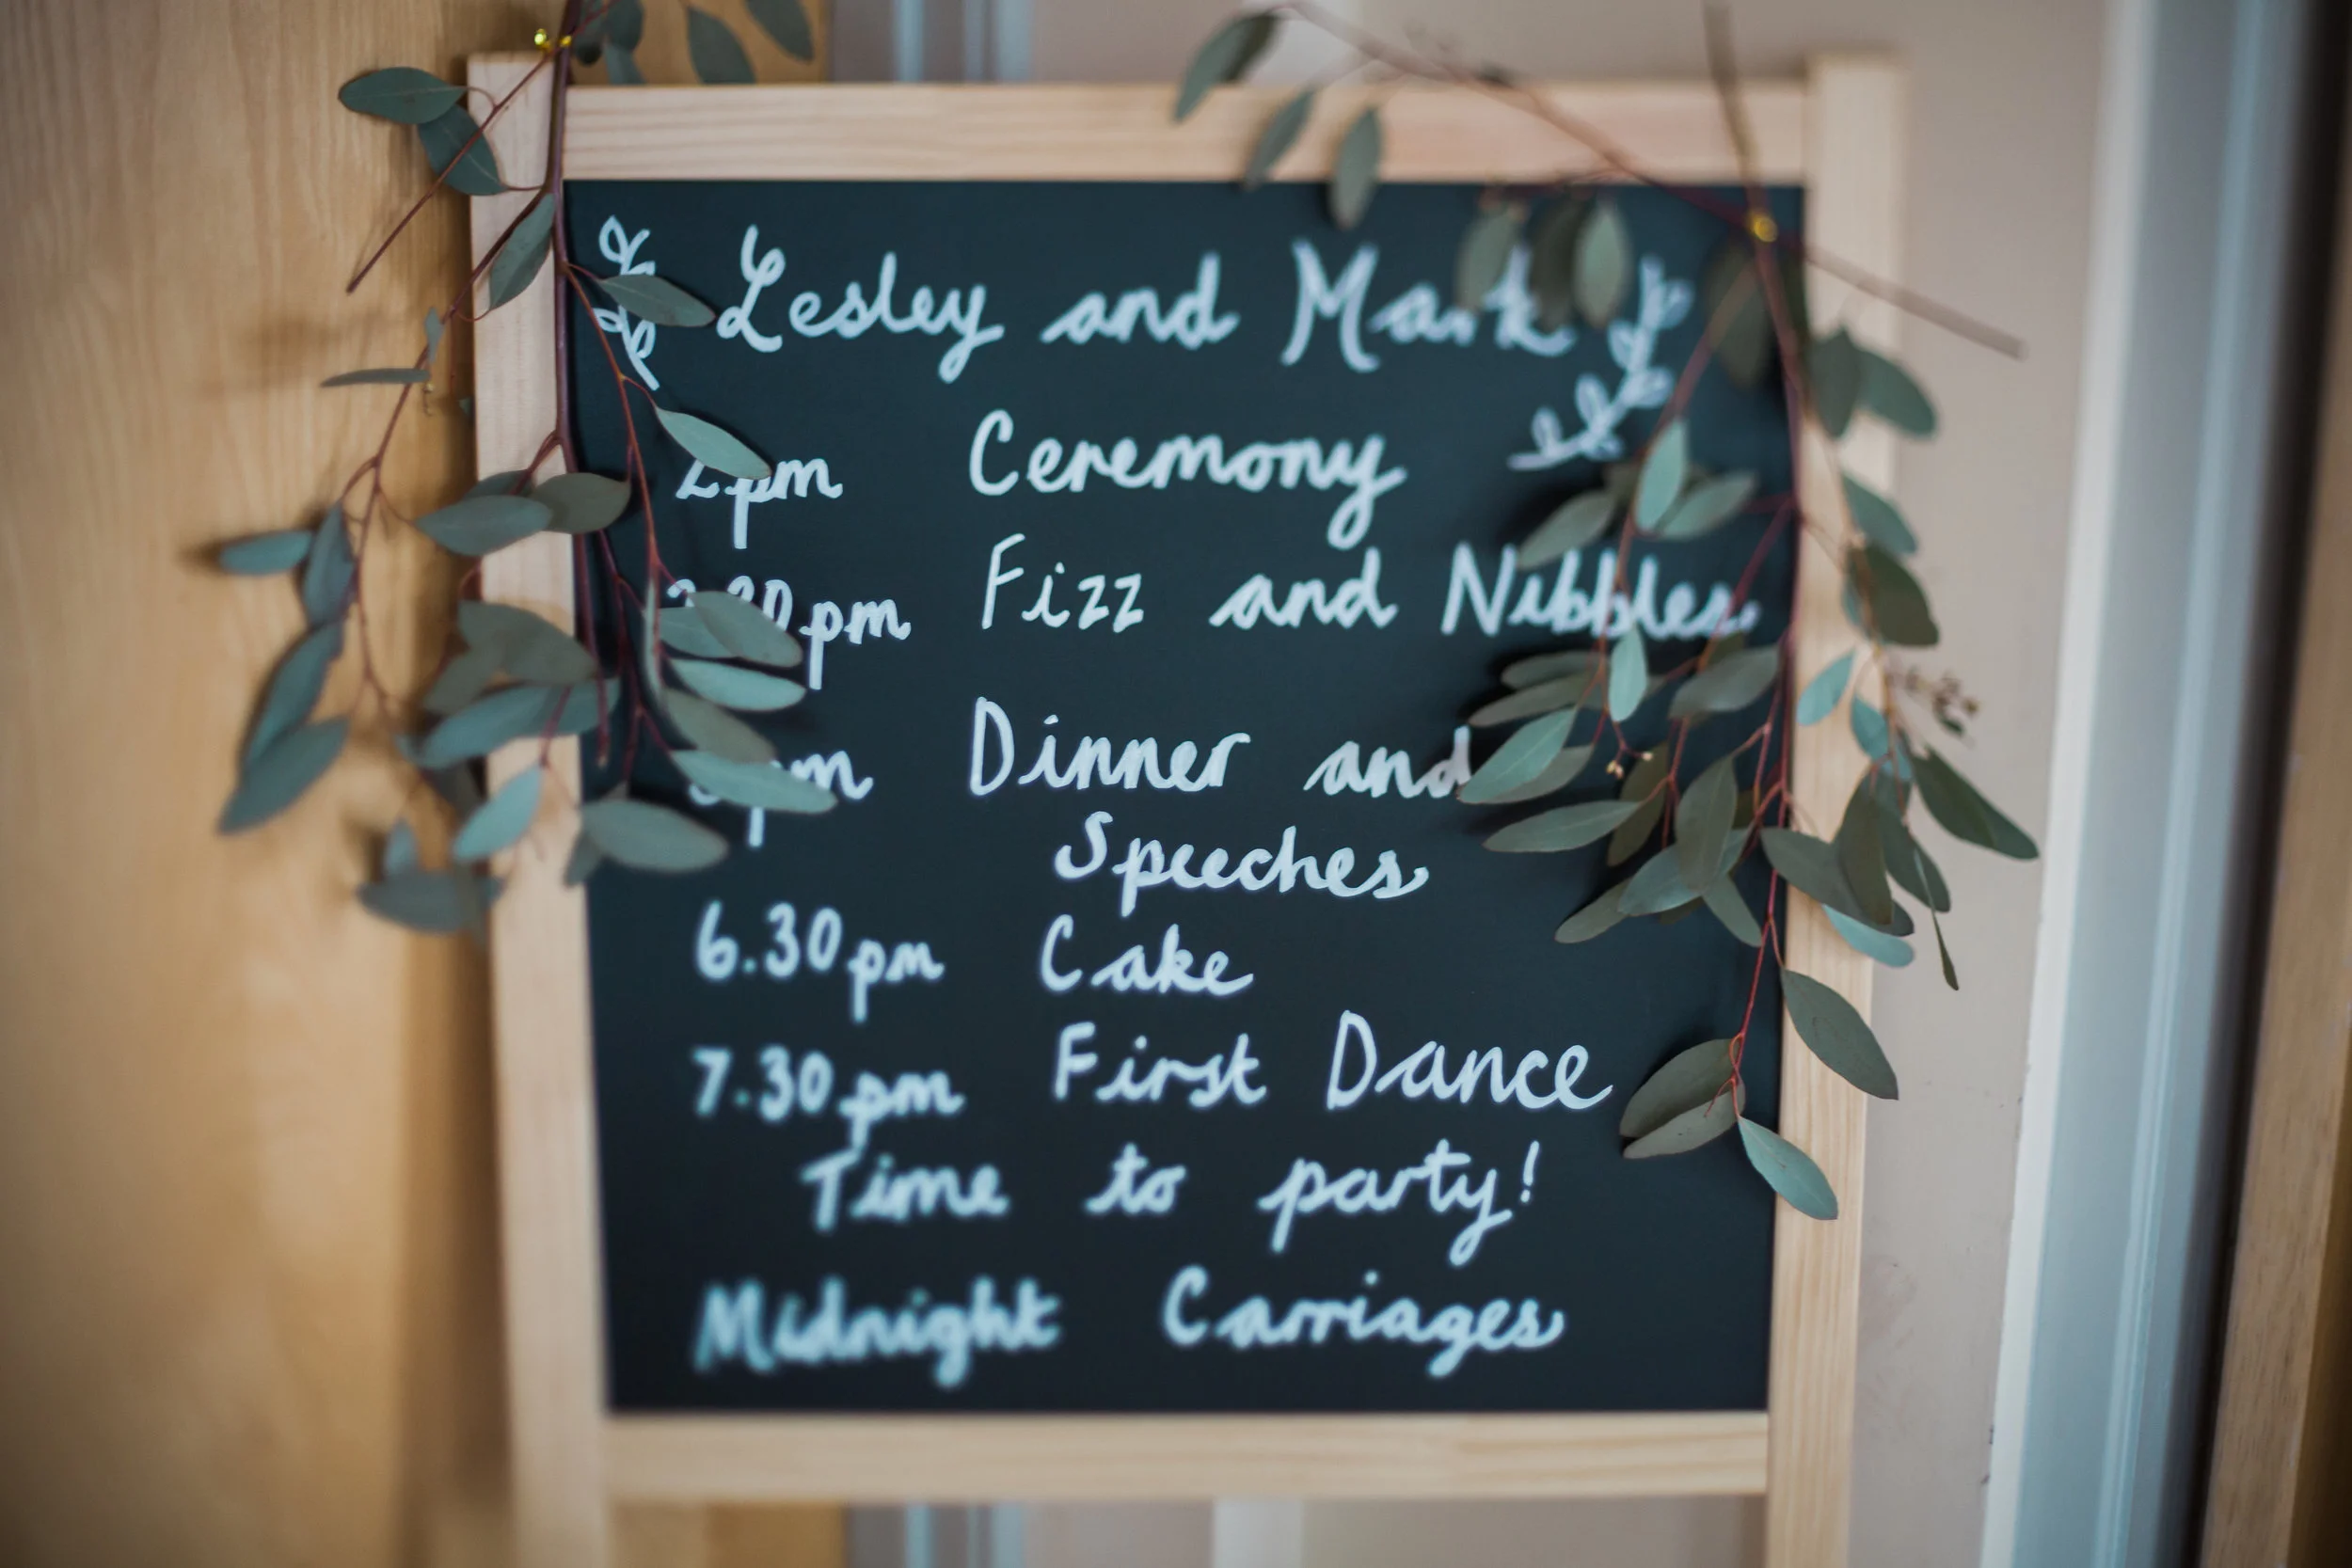 Lesley and Mark
2pm Ceremony
Fizz and Nibbles
Dinner and
Speeches
6.30pm Cake
7.30pm First Dance
Time to party!
Midnight Carriages